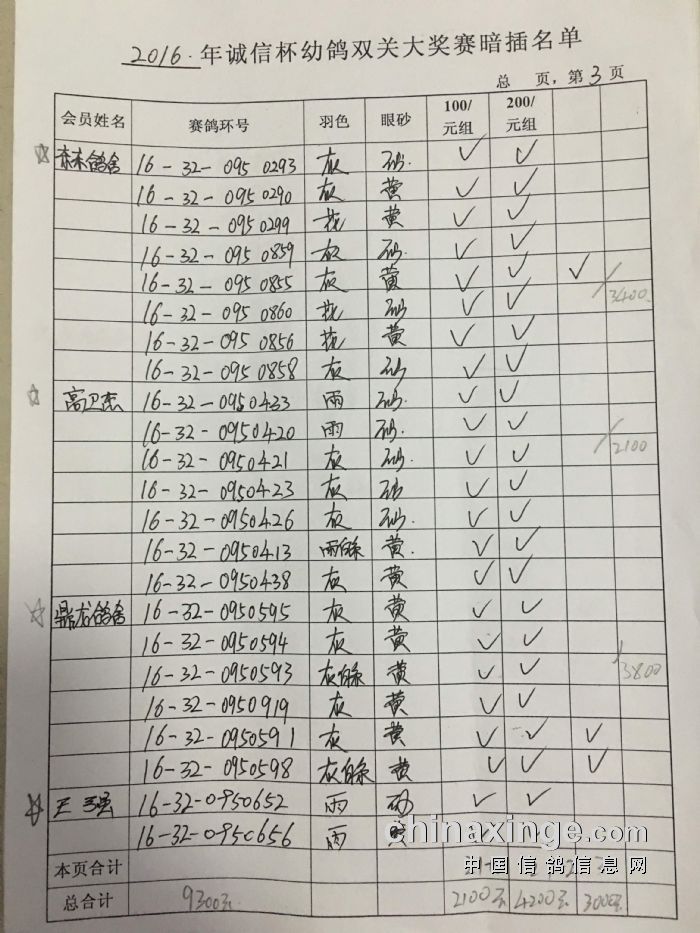 2016.年诚信杯幼鸽双关大奖赛暗插名单
总 页,第3页
会员姓名 赛鸽环号 羽色 眼砂 100/元组 200/元组
☆ 鸽舍 16-32-0950293 灰 砂 ✓ ✓
16-32-0950290 灰 黄 ✓ ✓
16-32-0950299 花 黄 ✓ ✓
16-32-0950859 灰 砂 ✓ ✓
16-32-0950855 灰 黄 ✓ ✓ ✓ / 3400
16-32-0950860 花 砂 ✓ ✓
16-32-0950856 花 黄 ✓ ✓
16-32-0950858 灰 砂 ✓ ✓
☆ 高卫杰 16-32-0950433 雨 砂 ✓ ✓
16-32-0950420 雨 砂 ✓ ✓ / 2100
16-32-0950421 灰 砂 ✓ ✓
16-32-0950423 灰 砂 ✓ ✓
16-32-0950426 灰 砂 ✓ ✓
16-32-0950413 雨白条 黄 ✓ ✓
16-32-0950438 灰 黄 ✓ ✓
☆ 鼎龙鸽舍 16-32-0950595 灰 黄 ✓ ✓
16-32-0950594 灰 黄 ✓ ✓
16-32-0950593 灰白条 黄 ✓ ✓ / 3800
16-32-0950919 灰 黄 ✓ ✓
16-32-0950591 灰 黄 ✓ ✓ ✓
16-32-0950598 灰白条 黄 ✓ ✓ ✓
☆ 王强 16-32-0950652 雨 砂 ✓ ✓
16-32-0950656 雨
chinaxinge.com
本页合计
中国信鸽信息网
总合计 9300元 2100元 4200元 3000元